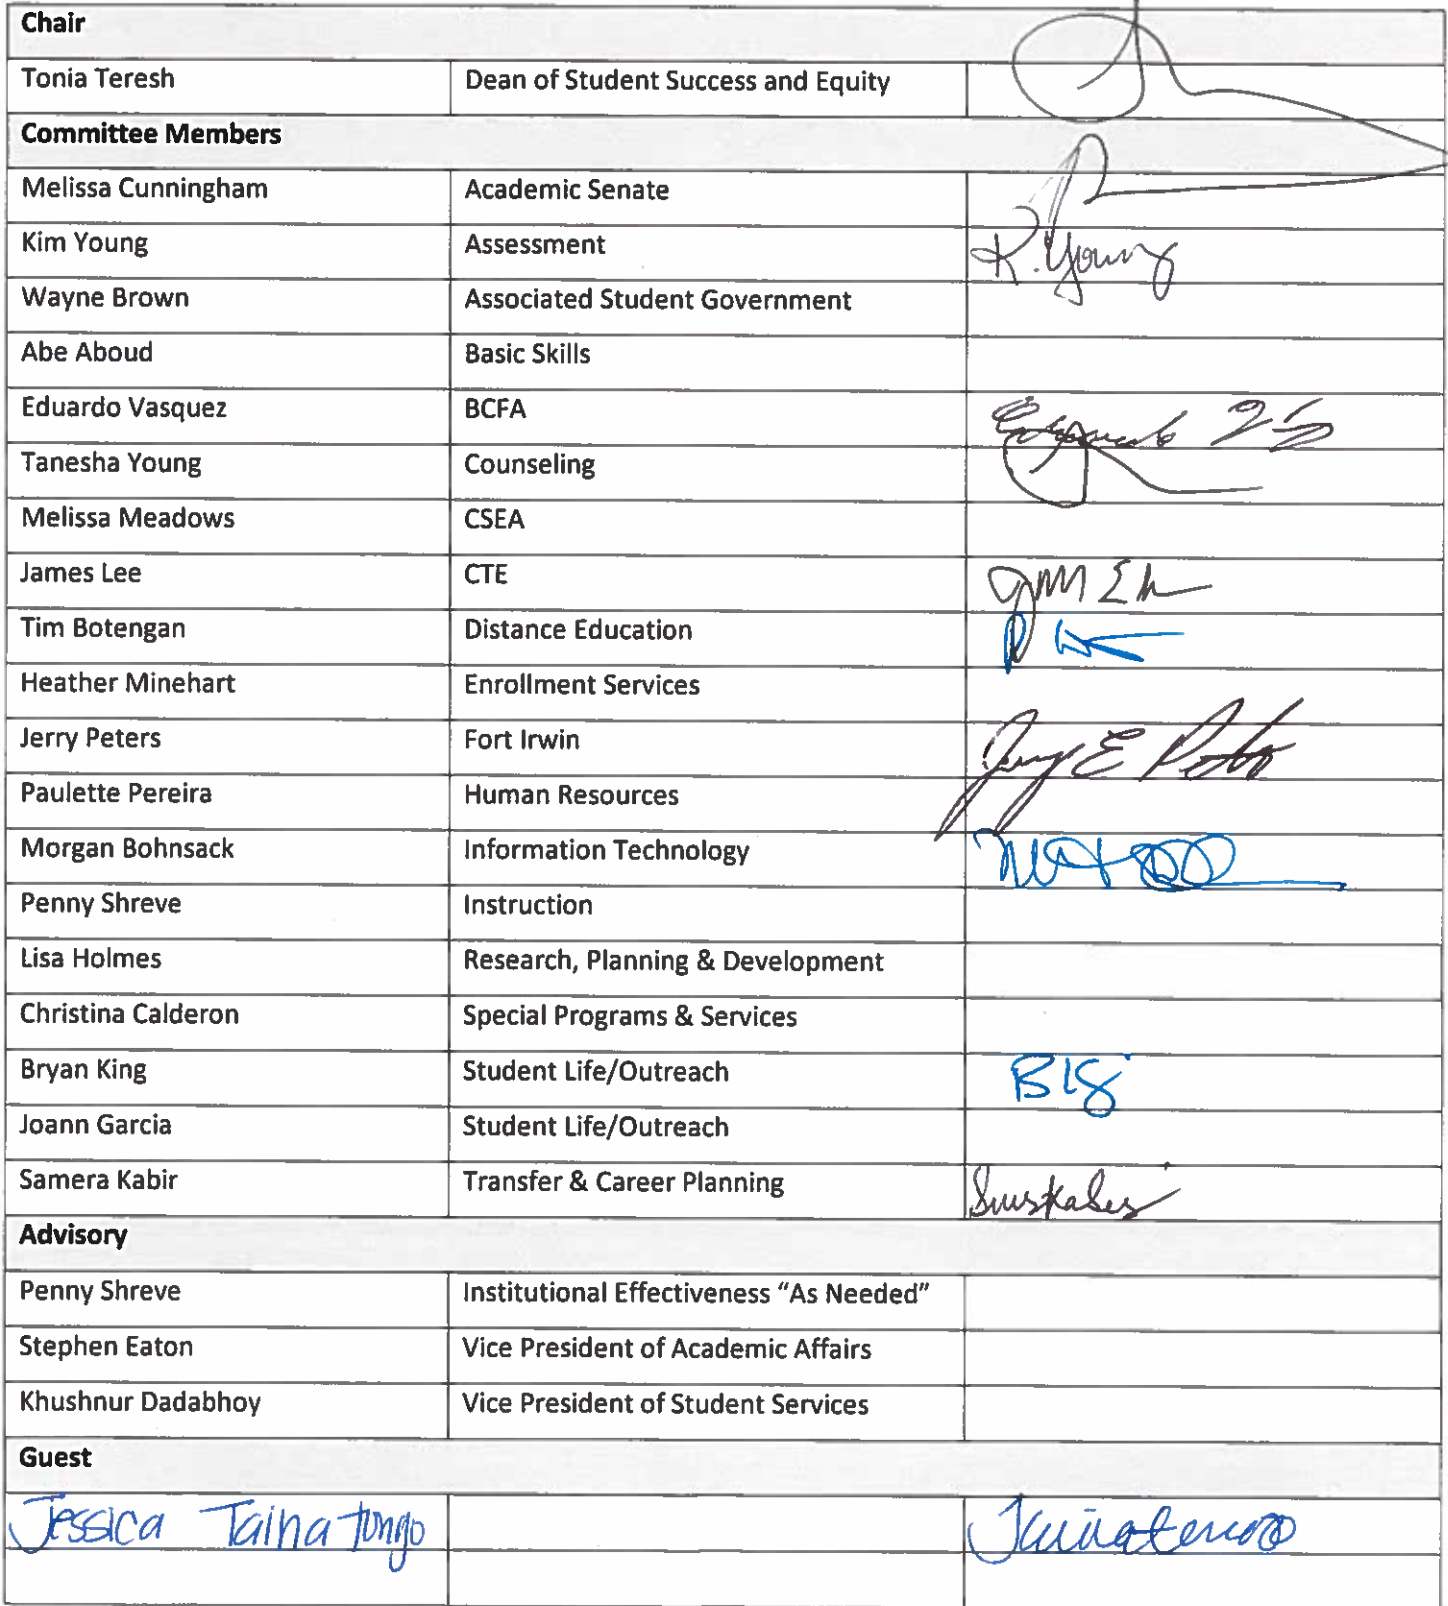 Chair
Tonia Teresh Dean of Student Success and Equity
Committee Members
Melissa Cunningham Academic Senate
Kim Young Assessment K. Young
Wayne Brown Associated Student Government
Abe Aboud Basic Skills
Eduardo Vasquez BCFA
Tanesha Young Counseling
Melissa Meadows CSEA
James Lee CTE
Tim Botengan Distance Education
Heather Minehart Enrollment Services
Jerry Peters Fort Irwin Jerry E Peters
Paulette Pereira Human Resources
Morgan Bohnsack Information Technology
Penny Shreve Instruction
Lisa Holmes Research, Planning & Development
Christina Calderon Special Programs & Services
Bryan King Student Life/Outreach
Joann Garcia Student Life/Outreach
Samera Kabir Transfer & Career Planning
Advisory
Penny Shreve Institutional Effectiveness “As Needed”
Stephen Eaton Vice President of Academic Affairs
Khushnur Dadabhoy Vice President of Student Services
Guest
Jessica